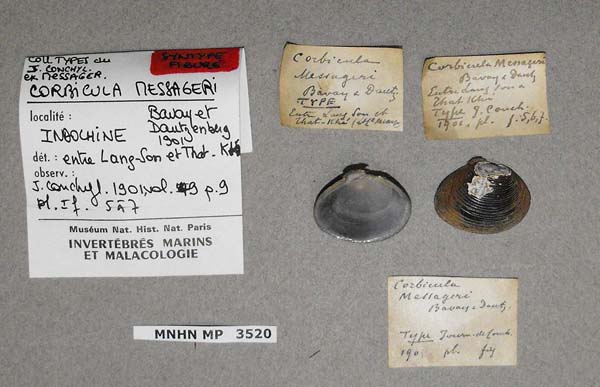 COLL TYPES du
J. CONCHYL.
ex MESSAGER.
SYNTYPE
FIGURÉ
CORBICULA MESSAGERI
localité :
Bavay et
Dautzenberg
1901
INDOCHINE
dét. : entre Lang-Son et That-Khé
observ. :
J. conchyl. 1901, vol. 49 p. 9
pl. I f. 5 à 7
Muséum Nat. Hist. Nat. Paris
INVERTÉBRÉS MARINS
ET MALACOLOGIE
Corbicula
Messageri
Bavay & Dautz
TYPE
Entre Lang Son et
That-Khé
Corbicula Messageri
Bavay & Dautz
Entre Lang Son &
That Khé
Type J. Conch.
1901, pl. f. 5, 6, 7.
Corbicula
Messageri
Bavay & Dautz
Type Journ. de Conch.
190 pl. fig
MNHN MP 3520